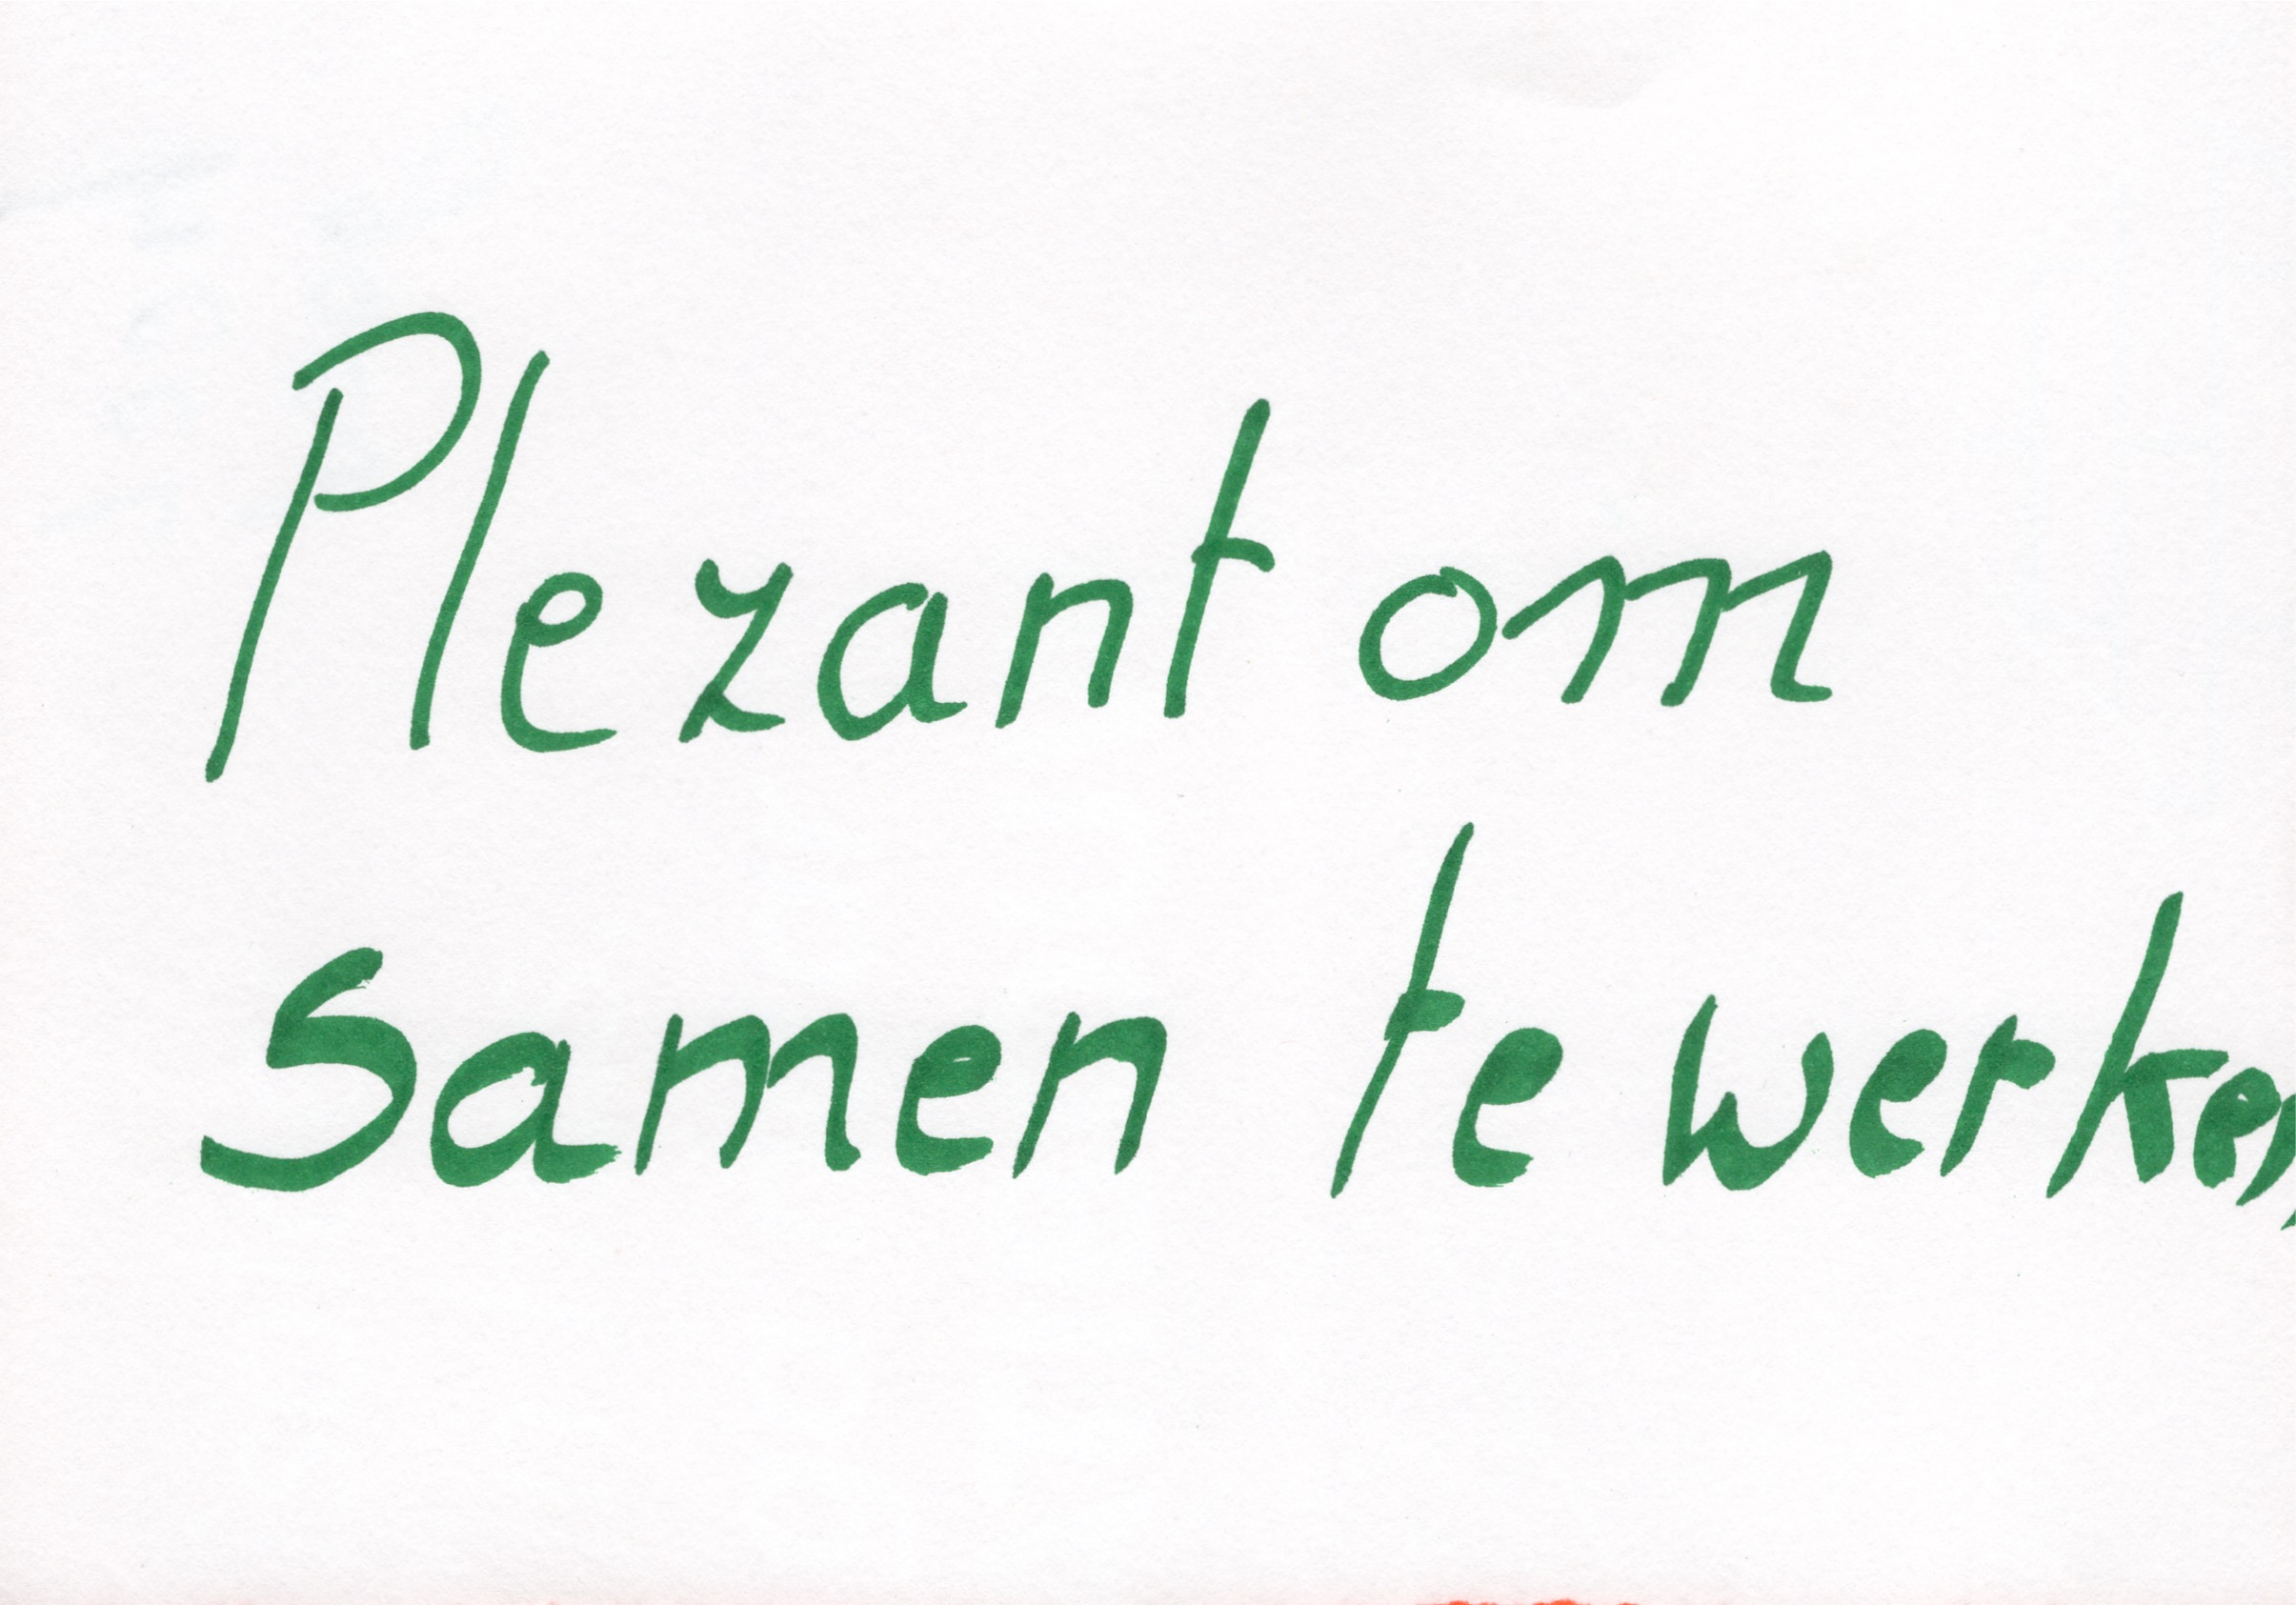 Plezant om
Samen te werken